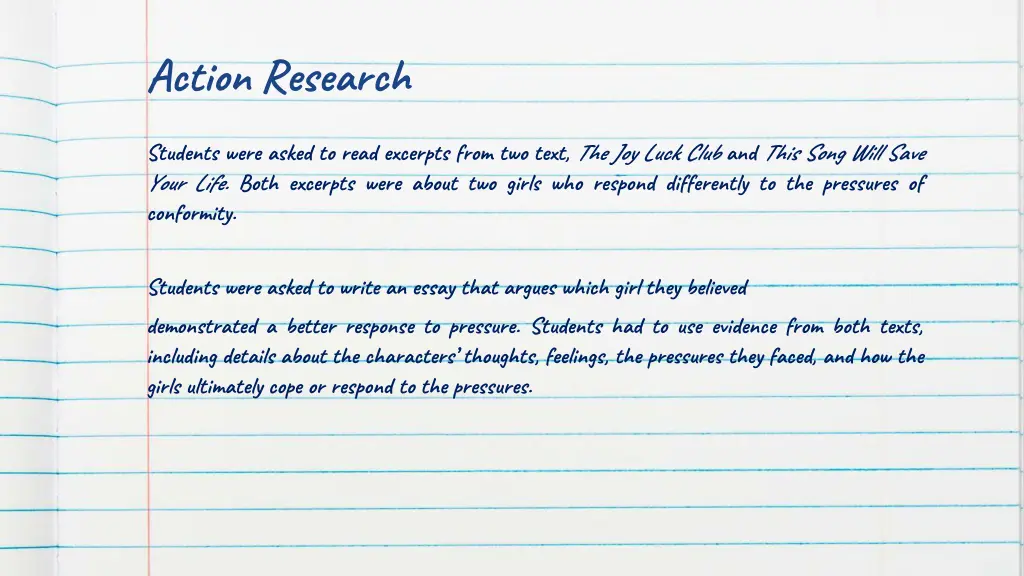 Action Research
Students were asked to read excerpts from two text, The Joy Luck Club and This Song Will Save
Your Life. Both excerpts were about two girls who respond differently to the pressures of
conformity.
Students were asked to write an essay that argues which girl they believed
demonstrated a better response to pressure. Students had to use evidence from both texts,
including details about the characters’ thoughts, feelings, the pressures they faced, and how the
girls ultimately cope or respond to the pressures.